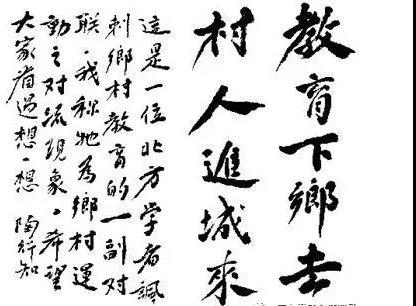 教育下鄉去
村人進城來
這是一位北方学者諷
刺鄉村教育的一副对
联。我称牠為鄉村運
動之对流現象。希望
大家省過想一想 陶行知